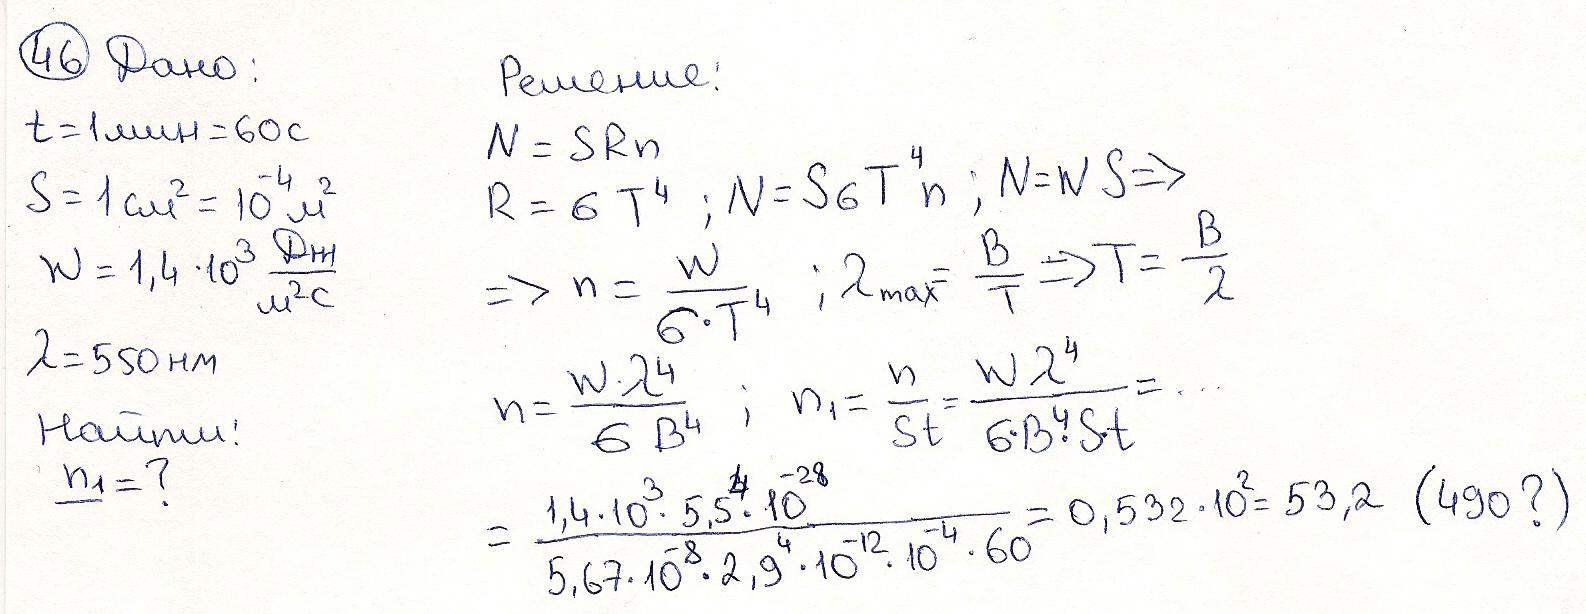 46 Дано:
t = 1 мин = 60 с
S = 1 см² = 10⁻⁴ м²
W = 1,4 · 10³ Дж/м²с
λ = 550 нм
Найти:
n₁ = ?
Решение:
N = SRn
R = σT⁴ ; N = SσT⁴n ; N = WS =>
=> n = W/(σ·T⁴) ; λmax = B/T => T = B/λ
n = W·λ⁴/(σB⁴) ; n₁ = n/(St) = Wλ⁴/(σ·B⁴·S·t) = ...
= (1,4·10³·5,5⁴·10⁻²⁸)/(5,67·10⁻⁸·2,9⁴·10⁻¹²·10⁻⁴·60) = 0,532·10² = 53,2 (490?)